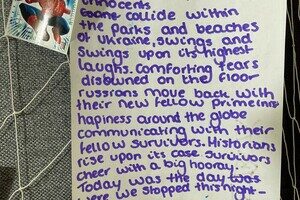 innocents
collide within
the parks and beaches
of Ukraine, swings and
swings upon its highest
laughs. Comforting tears
disowned on the floor
russians move back with
their new fellow
hapiness around the globe
communicating with their
fellow survivors. Historians
rise upon its case survivors
cheer with a big hooray.
Today was the day was
were we stopped this night-